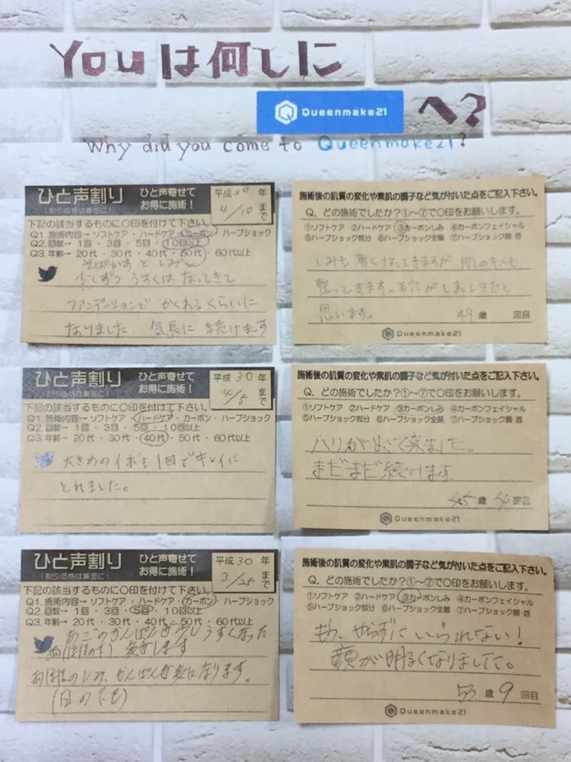 Youは何しに
Queenmake21 へ?
Why did you come to Queenmake21?
ひと声割り ひと声寄せて お得に施術！ 平成30年
(割引価格は裏面に) 4/10 まで
下記の該当するものに〇印を付けて下さい。
Q1. 施術内容→ソフトケア・ハードケア・カーボン・ハーブショック
Q2. 回数→1回・3回・5回・10回以上
Q3. 年齢→20代・30代・40代・50代・60代以上
そばかすと しみ
少しずつ うすくは なってきて
ファンデーションで かくれるくらいに
なりました 気長に 続けます
施術後の肌質の変化や素肌の調子など気が付いた点をご記入下さい。
Q. どの施術でしたか?①〜⑦で〇印をお願いします。
①ソフトケア ②ハードケア ③カーボンしみ ④カーボンフェイシャル
⑤ハーブショック部分 ⑥ハーブショック全顔 ⑦ハーブショック顔・首
しみも 薄くなってきますが 肌のキメも
整ってきます。
思います。 49歳 回目
Queenmake21
ひと声割り ひと声寄せて お得に施術！ 平成30年
(割引価格は裏面に) 4/5 まで
下記の該当するものに〇印を付けて下さい。
Q1. 施術内容→ソフトケア・ハードケア・カーボン・ハーブショック
Q2. 回数→1回・3回・5回・10回以上
Q3. 年齢→20代・30代・40代・50代・60代以上
大きめのイボも1回でキレイに
とれました。
施術後の肌質の変化や素肌の調子など気が付いた点をご記入下さい。
Q. どの施術でしたか?①〜⑦で〇印をお願いします。
①ソフトケア ②ハードケア ③カーボンしみ ④カーボンフェイシャル
⑤ハーブショック部分 ⑥ハーブショック全顔 ⑦ハーブショック顔・首
ハリがよくて来ました。
まだまだ続けます。
45歳 4回目
Queenmake21
ひと声割り ひと声寄せて お得に施術！ 平成30年
(割引価格は裏面に) 3/25 まで
下記の該当するものに〇印を付けて下さい。
Q1. 施術内容→ソフトケア・ハードケア・カーボン・ハーブショック
Q2. 回数→1回・3回・5回・10回以上
Q3. 年齢→20代・30代・40代・50代・60代以上
あごのかんぱんが少しうすくなった
気がします
しみ、かんぱんが気になります。
(目の下も)
施術後の肌質の変化や素肌の調子など気が付いた点をご記入下さい。
Q. どの施術でしたか?①〜⑦で〇印をお願いします。
①ソフトケア ②ハードケア ③カーボンしみ ④カーボンフェイシャル
⑤ハーブショック部分 ⑥ハーブショック全顔 ⑦ハーブショック顔・首
もう、やらずにいられない！
顔が明るくなりました。
53歳 9回目
Queenmake21